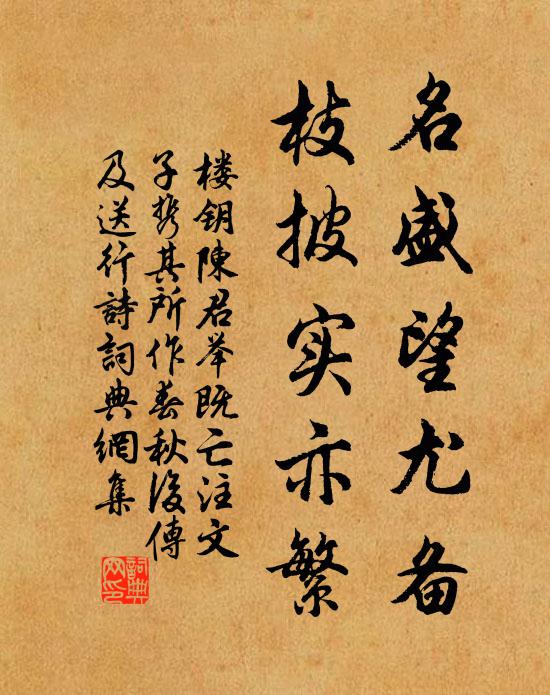 名盛望尤备
枝披实亦繁
楼钥陳君举既亡汪文
子携其所作春秋後傳
及送行詩詞典網集
詞典網印